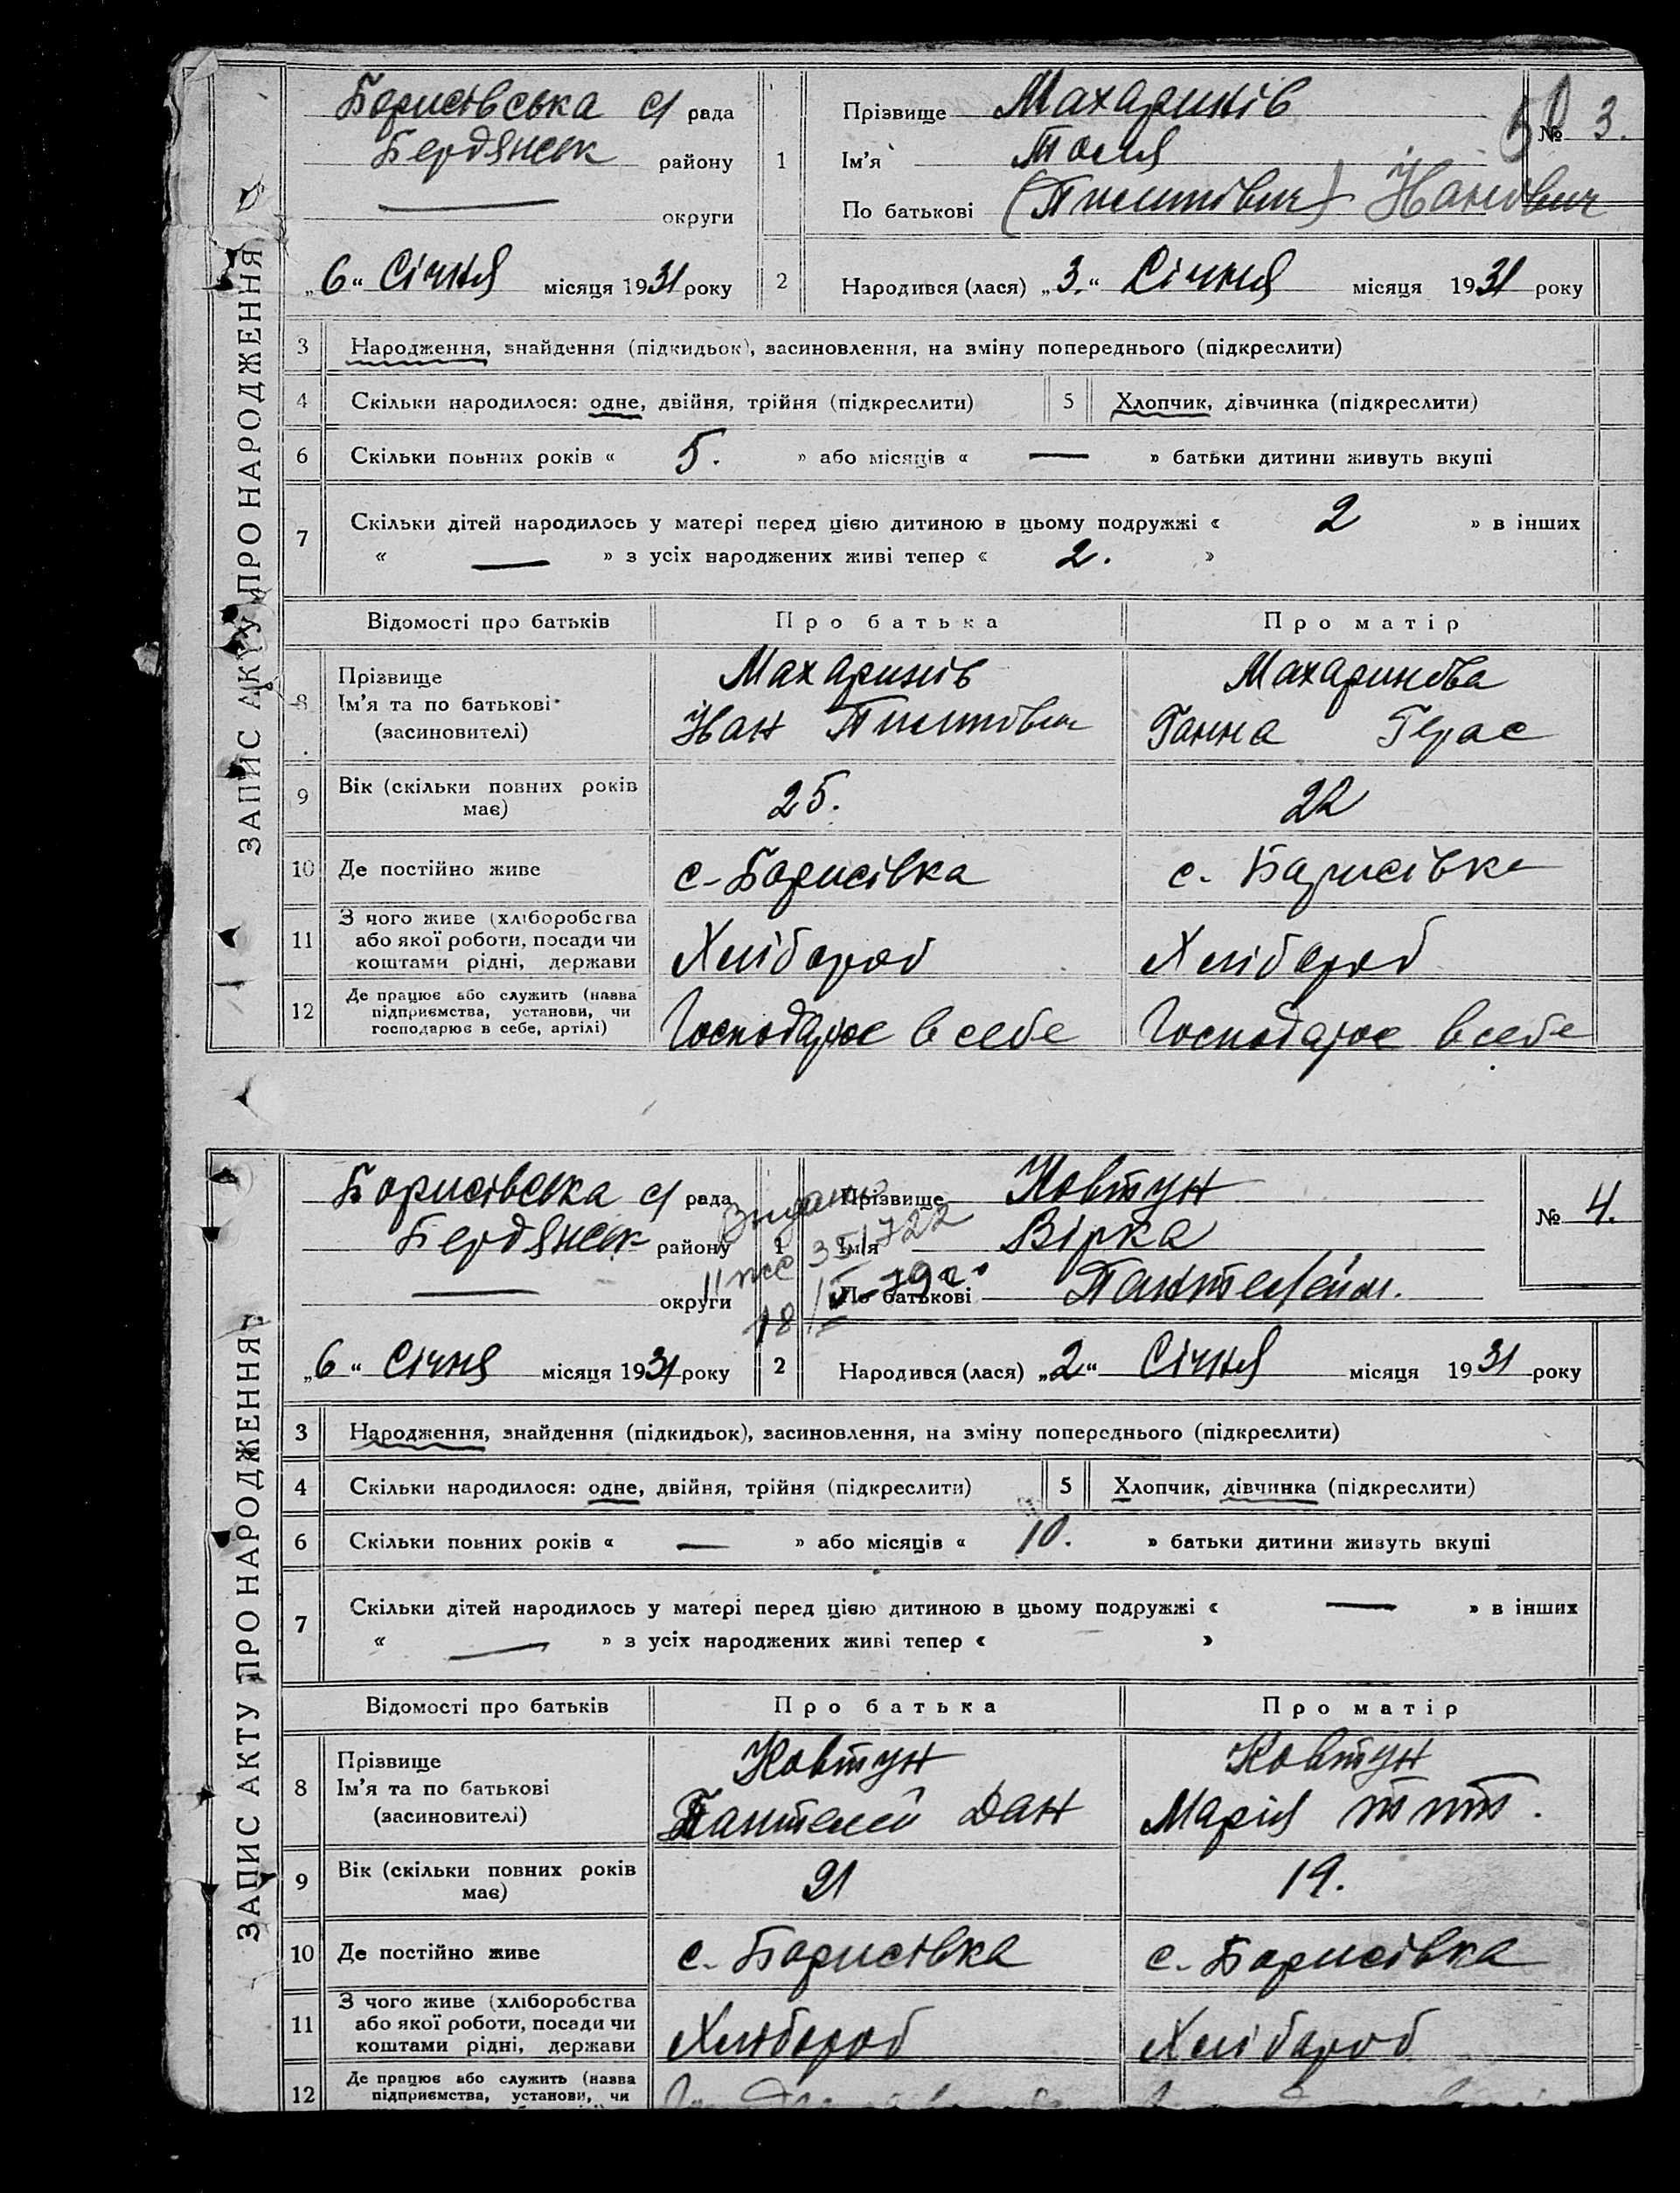 ЗАПИС АКТУ ПРО НАРОДЖЕННЯ
Борисівська с/ рада
Бердянськ району
округи
„6“ Січня місяця 1931 року
1
Прізвище Махаринів
Ім'я Толя
По батькові (Пилипівич)
№ 3.
2 Народився (лася) „3.“ Січня місяця 1931 року
3 Народження, знайдення (підкидьок), засиновлення, на зміну попереднього (підкреслити)
4 Скільки народилося: одне, двійня, трійня (підкреслити) 5 Хлопчик, дівчинка (підкреслити)
6 Скільки повних років « 5. » або місяців « — » батьки дитини живуть вкупі
7 Скільки дітей народилось у матері перед цією дитиною в цьому подружжі « 2 » в інших
« — » з усіх народжених живі тепер « 2. »
Відомості про батьків Про батька Про матір
8 Прізвище Махаринів Махаринова
Ім'я та по батькові Ган Пилипівич Ганна Герас
(засиновителі)
9 Вік (скільки повних років має) 25. 22
10 Де постійно живе с-Борисівка с. Борисівка
11 З чого живе (хліборобства або якої роботи, посади чи коштами рідні, держави Хлібороб Хлібороб
12 Де працює або служить (назва підприємства, установи, чи господарює в себе, артілі) Господарює в себе Господарює в себе
ЗАПИС АКТУ ПРО НАРОДЖЕННЯ
Борисівська с/ рада
Бердянськ району
округи
„6“ Січня місяця 1931 року
1
Прізвище Ковтун
Ім'я Вірка
По батькові Пантелейм.
№ 4.
2 Народився (лася) „2“ Січня місяця 1931 року
3 Народження, знайдення (підкидьок), засиновлення, на зміну попереднього (підкреслити)
4 Скільки народилося: одне, двійня, трійня (підкреслити) 5 Хлопчик, дівчинка (підкреслити)
6 Скільки повних років « — » або місяців « 10. » батьки дитини живуть вкупі
7 Скільки дітей народилось у матері перед цією дитиною в цьому подружжі « — » в інших
« — » з усіх народжених живі тепер « »
Відомості про батьків Про батька Про матір
8 Прізвище Ковтун Ковтун
Ім'я та по батькові Пантелей Дан Марія
(засиновителі)
9 Вік (скільки повних років має) 21 19.
10 Де постійно живе с. Борисівка с. Борисівка
11 З чого живе (хліборобства або якої роботи, посади чи коштами рідні, держави Хлібороб Хлібороб
12 Де працює або служить (назва підприємства, установи, чи